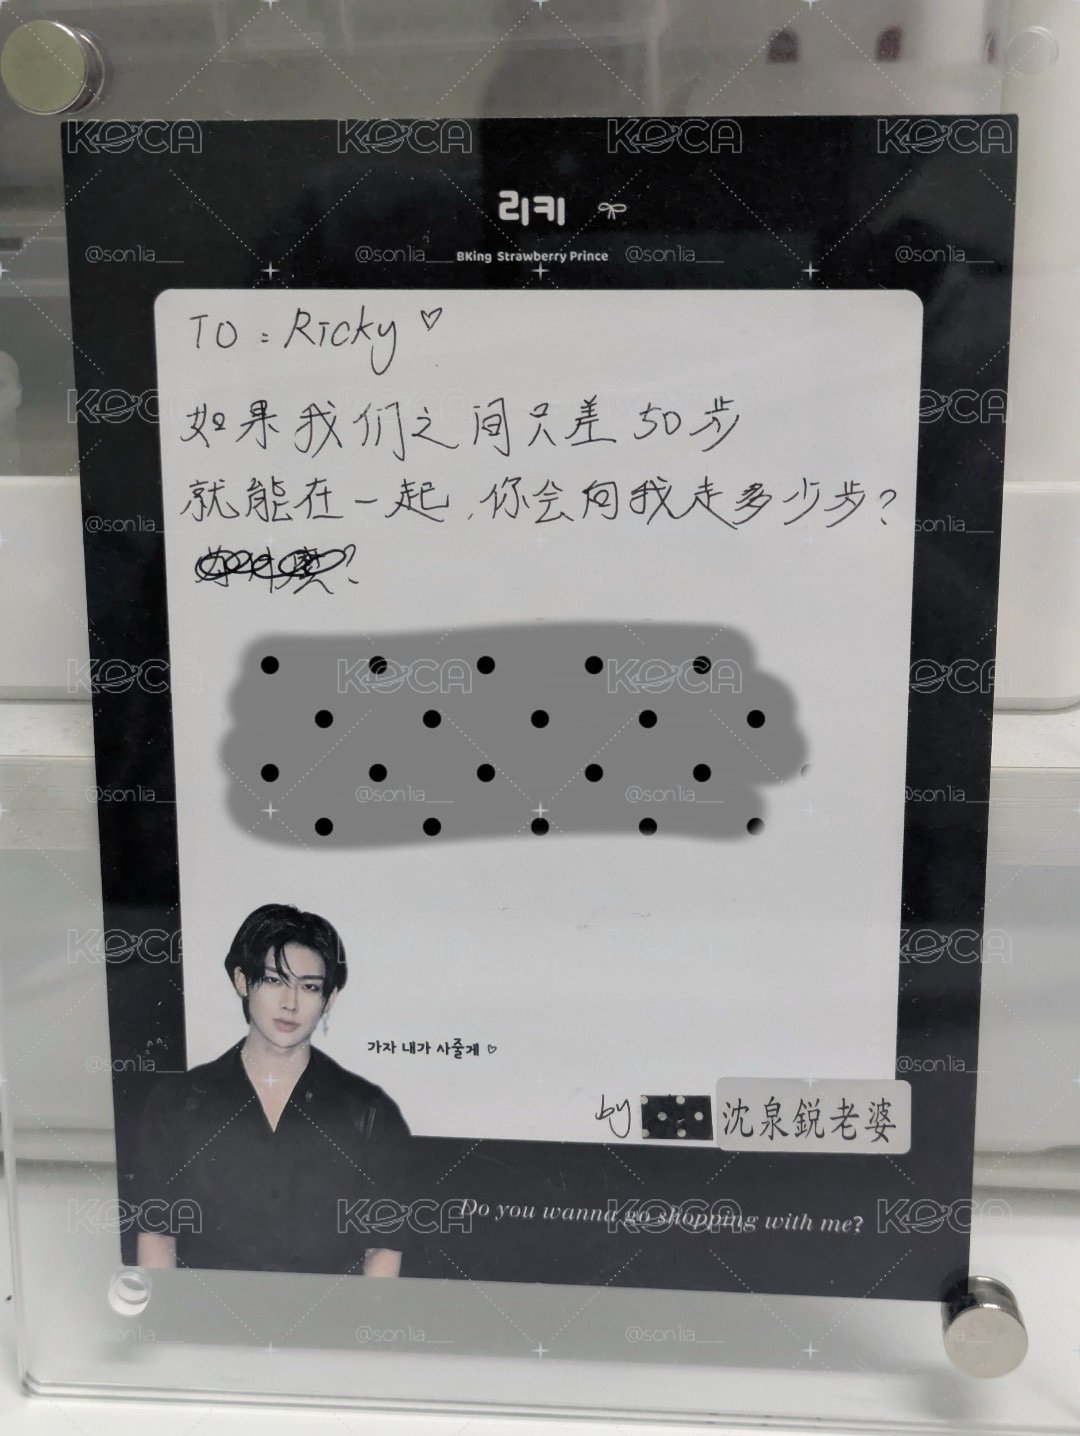 리키
BKing Strawberry Prince
TO : Ricky ♡
如果我们之间只差50步
就能在一起，你会向我走多少步?
가자 내가 사줄게 ♡
by 沈泉鋭老婆
Do you wanna go shopping with me?
KOCA
@son1ia__